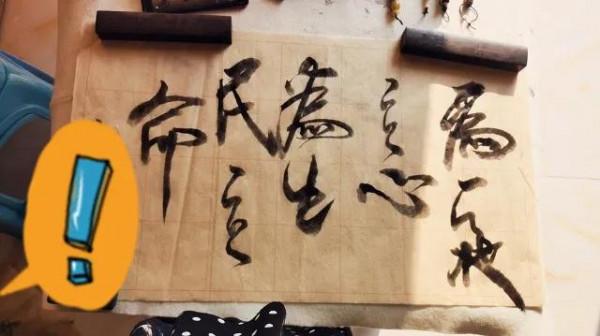 為天地
立心
為生
民立
命
!